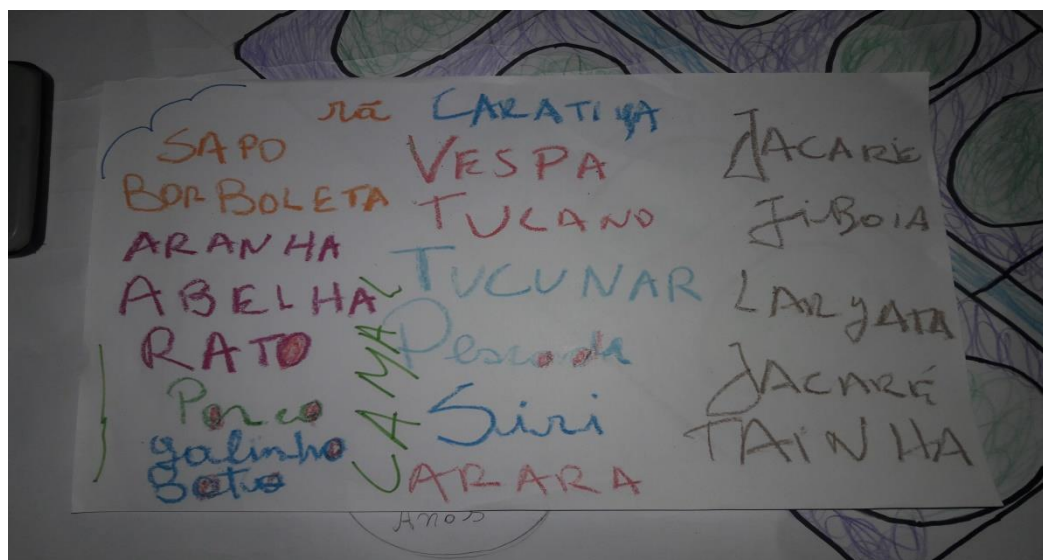 rã
SAPO
BORBOLETA
ARANHA
ABELHA
RATO
Porco
galinha
CAMAL
CARATINGA
VESPA
TUCANO
TUCUNAR
Pescada
Siri
ARARA
JACARE
JiBOIA
LARgATA
JACARÉ
TAiNHA
Anos